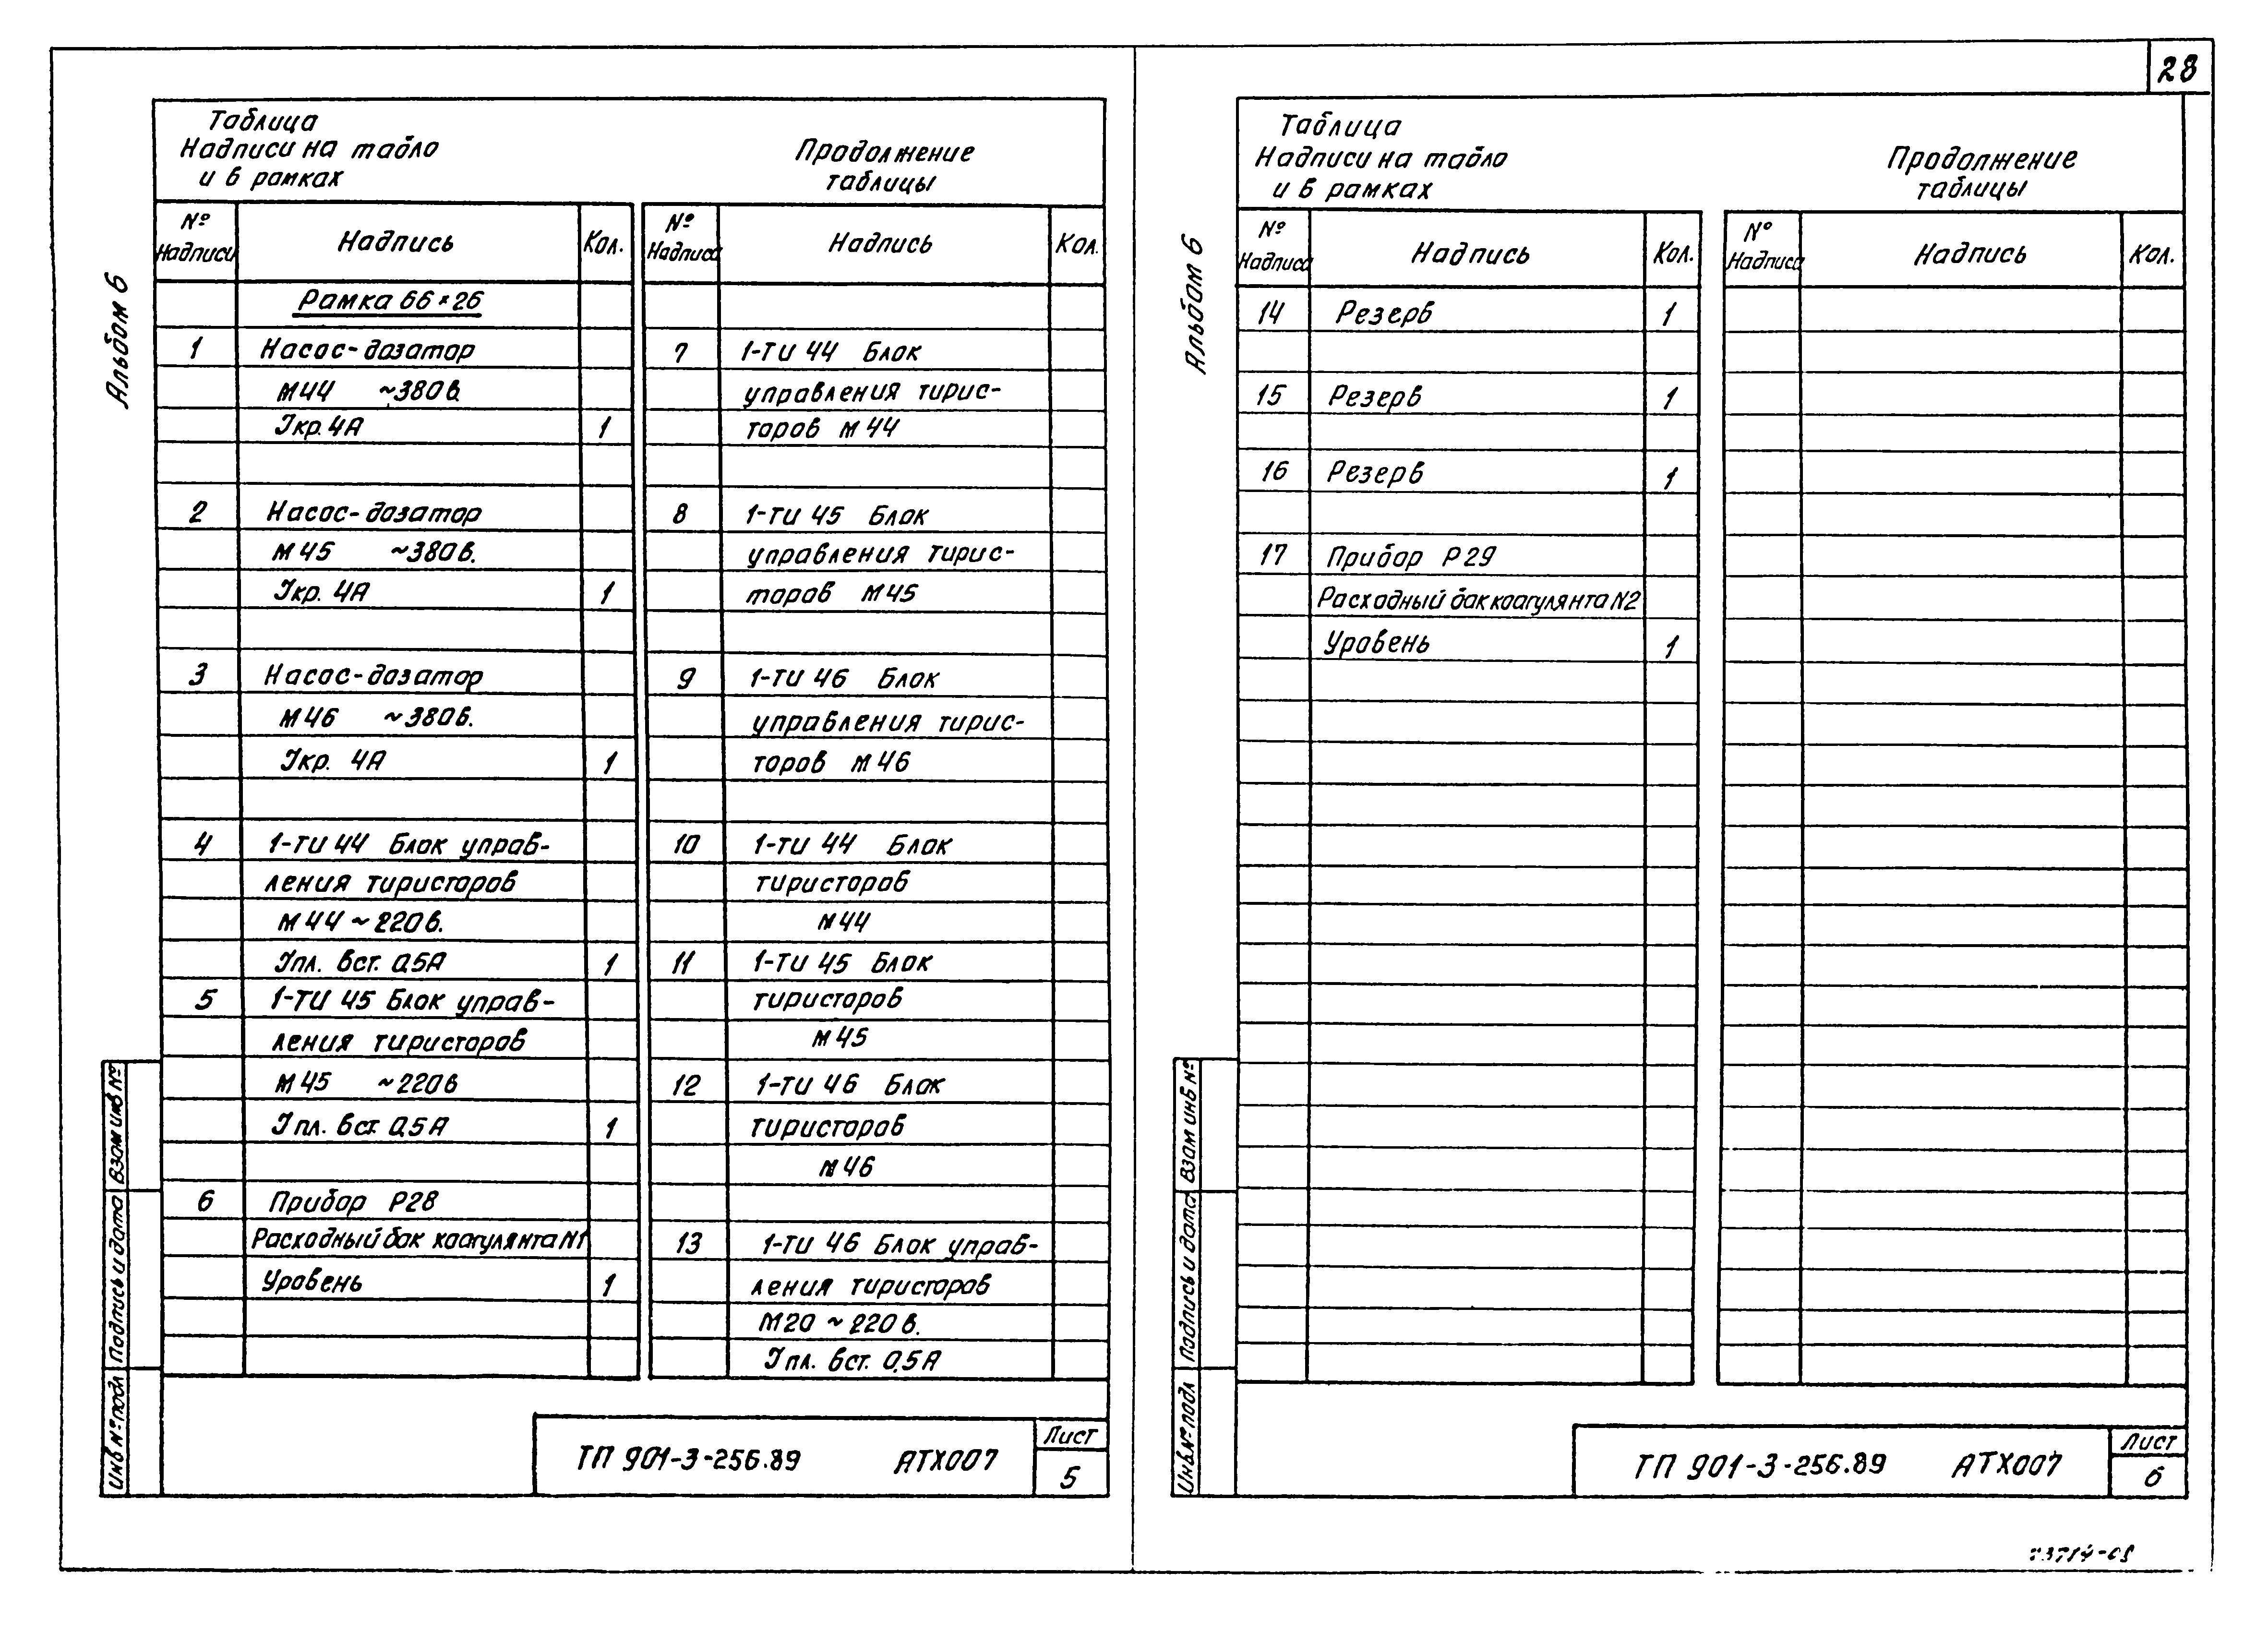 28
Альбом 6
Таблица
Надписи на табло
и в рамках
Продолжение
таблицы
№ Надписи Надпись Кол.
Рамка 66×26
1 Насос-дозатор
М44 ~380в.
Iкр. 4А 1
2 Насос-дозатор
М45 ~380в.
Iкр. 4А 1
3 Насос-дозатор
М46 ~380в.
Iкр. 4А 1
4 1-ТИ 44 Блок управ-
ления тиристоров
М44 ~220в.
Iпл. вст. 0,5А 1
5 1-ТИ 45 Блок управ-
ления тиристоров
М45 ~220в
Iпл. вст. 0,5А 1
6 Прибор Р28
Расходный бак коагулянта N1
Уровень 1
№ Надписи Надпись Кол.
7 1-ТИ 44 Блок
управления тирис-
торов М44
8 1-ТИ 45 Блок
управления тирис-
торов М45
9 1-ТИ 46 Блок
управления тирис-
торов М46
10 1-ТИ 44 Блок
тиристоров
М44
11 1-ТИ 45 Блок
тиристоров
М45
12 1-ТИ 46 Блок
тиристоров
М46
13 1-ТИ 46 Блок управ-
ления тиристоров
М20 ~220в.
Iпл. вст. 0,5А
Инв № подл Подпись и дата Взам инв №
ТП 901-3-256.89 АТХ007
Лист
5
Альбом 6
Таблица
Надписи на табло
и в рамках
Продолжение
таблицы
№ Надписи Надпись Кол.
14 Резерв 1
15 Резерв 1
16 Резерв 1
17 Прибор Р29
Расходный бак коагулянта N2
Уровень 1
№ Надписи Надпись Кол.
Инв.№ подл Подпись и дата Взам инв №
ТП 901-3-256.89 АТХ007
Лист
6